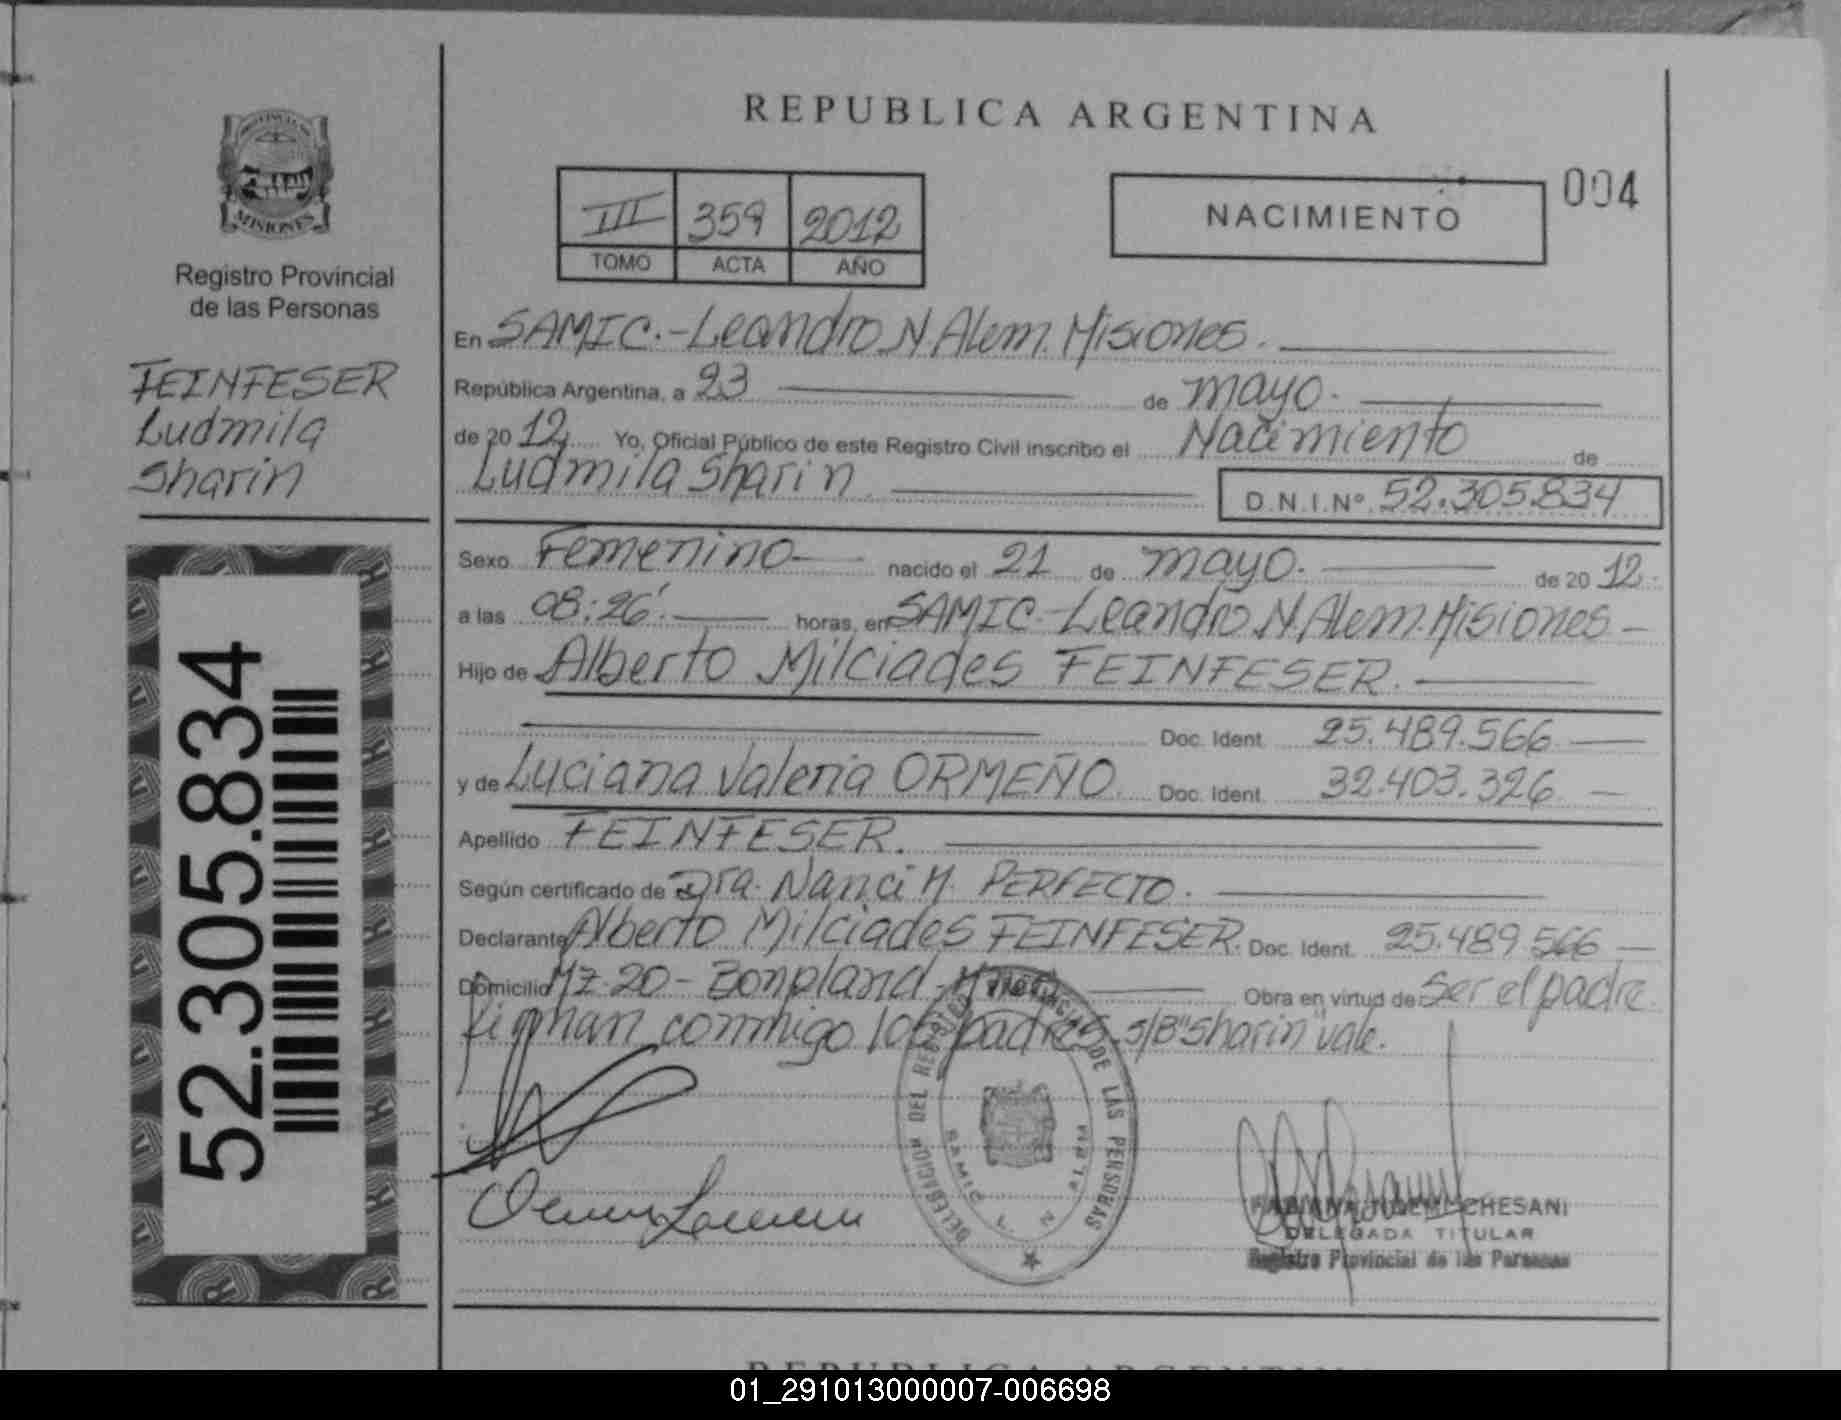 REPUBLICA ARGENTINA
PROVINCIA DE
MISIONES
Registro Provincial
de las Personas
FEINFESER
Ludmila
Sharin
52.305.834
III 359 2012
TOMO ACTA AÑO
NACIMIENTO
004
En SAMIC.-Leandro N Alem. Misiones.
República Argentina, a 23 de mayo.
de 2012 Yo, Oficial Público de este Registro Civil inscribo el Nacimiento de
Ludmila Sharin D.N.I.Nº 52.305.834
Sexo Femenino nacido el 21 de mayo. de 2012.
a las 08:26'. horas, en SAMIC-Leandro N. Alem. Misiones-
Hijo de Alberto Milciades FEINFESER.
Doc. Ident. 25.489.566
y de Luciana Valeria ORMEÑO. Doc. Ident. 32.403.326
Apellido FEINFESER.
Según certificado de Dra. Nanci M. PERFECTO.
Declarante Alberto Milciades FEINFESER. Doc. Ident. 25.489.566
Domicilio Mz-20-Bonpland- Obra en virtud de Ser el padre.
Firman conmigo los padres. s/B "Sharin" vale.
DELEGACION DEL REGISTRO PROVINCIAL DE LAS PERSONAS
SAMIC L. N. ALEM
FABIANA NOEMI CHESANI
DELEGADA TITULAR
Registro Provincial de las Personas
REPUBLICA ARGENTINA
01_291013000007-006698